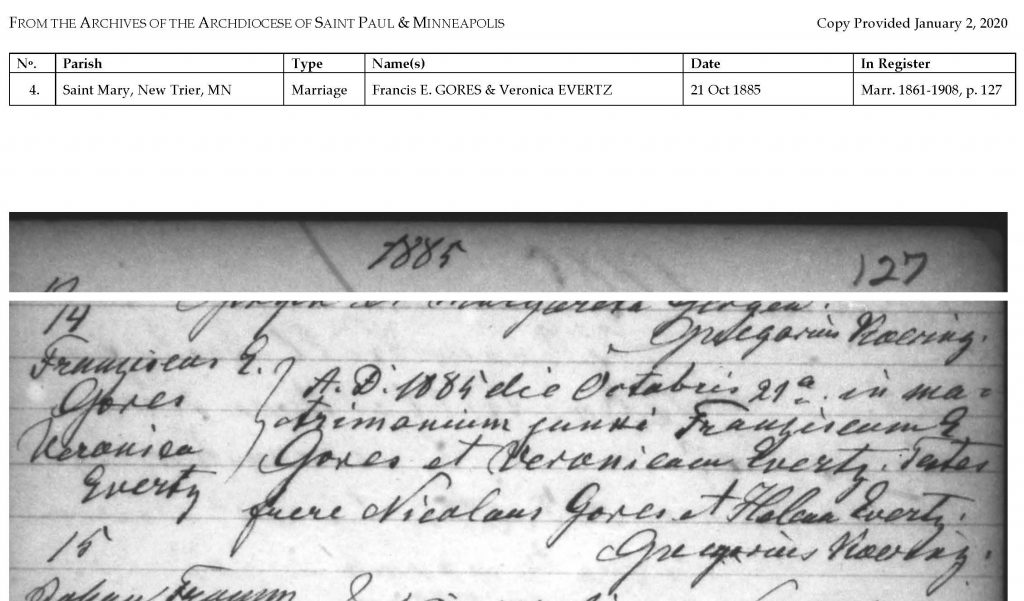 FROM THE ARCHIVES OF THE ARCHDIOCESE OF SAINT PAUL & MINNEAPOLIS
Copy Provided January 2, 2020
No. Parish Type Name(s) Date In Register
4. Saint Mary, New Trier, MN Marriage Francis E. GORES & Veronica EVERTZ 21 Oct 1885 Marr. 1861-1908, p. 127
1885
127
et Margareta Gergen.
Gregorius Koering.
14
Franciscus E.
Gores
Veronica
Evertz
A. D. 1885 die Octobris 21a. in ma-
trimonium junxi Franciscum E.
Gores et Veronicam Evertz. Testes
fuere Nicolaus Gores et Helena Evertz.
Gregorius Koering.
15